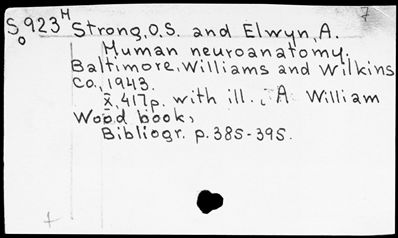 7
So923H Strong, O.S. and Elwyn, A.
Human neuroanatomy.
Baltimore, Williams and Wilkins
Co., 1943.
x, 417p. with ill., A William
Wood book,
Bibliogr. p. 385-395.